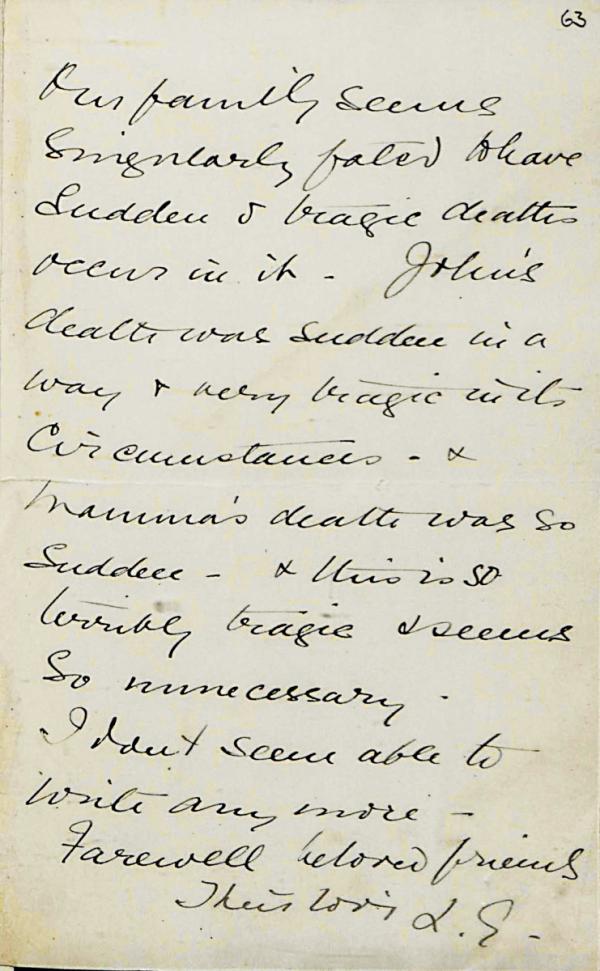 63
Our family seems
singularly fated to have
sudden & tragic deaths
occur in it - John's
death was sudden in a
way & very tragic in its
circumstances - &
Mamma's death was so
sudden - & this is so
terribly tragic & seems
so unnecessary.
I don't seem able to
write any more -
Farewell beloved friend
L. G. -